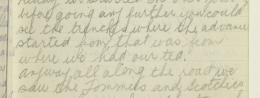 before going any further you could
see the trenches where the advance
started from, that was from
where we had our tea.
anyway all along the road we
saw the Tommies and Scotchies